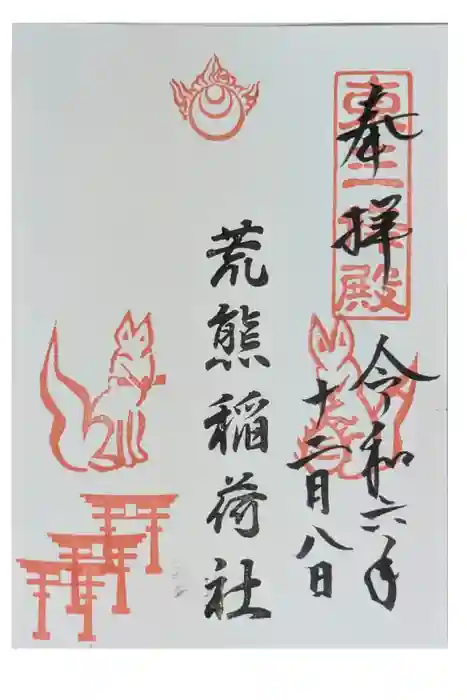 奉拝
令和六年
十二月八日
荒熊稲荷社